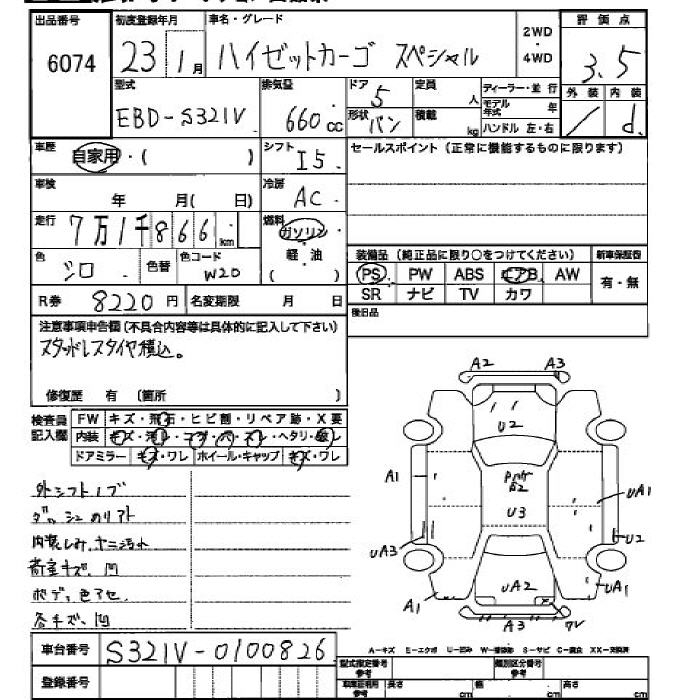 出品番号 初度登録年月 車名・グレード 2WD ・ 4WD 評価点
6074 23 1月 ハイゼットカーゴ スペシャル 3.5
型式 排気量 ドア 定員 ディーラー・並行 外装 内装
EBD-S321V 660cc 5 人 モデル年式 年 / d
形状 バン 積載 kg ハンドル 左・右
車歴 自家用・( ) シフト I5 セールスポイント(正常に機能するものに限ります)
車検 年 月( 日) 冷房 AC
走行 7万1千866km 燃料 ガソリン
軽・油
( )
色 シロ 色替 色コード W20 装備品(純正品に限り○をつけてください) 新車保証書
PS PW ABS エアB AW 有・無
SR ナビ TV カワ
R券 8220円 名変期限 月 日
後日品
注意事項申告欄(不具合内容等は具体的に記入して下さい)
スタッドレスタイヤ積込。
修復歴 有 〔箇所 〕
検査員記入欄 FW キズ・飛石・ヒビ割・リペア跡・X要
内装 キズ・汚レ・コゲ・ハガレ・ヘタリ・
ドアミラー キズ・ワレ ホイール・キャップ キズ・ワレ
外シフトノブ
ダッシュのリアト
内装しみ、ヤニ汚れ
荷室キズ、凹
ボディ色アセ
各キズ、凹
A2 A3
U2
A1 UA1
U3
UA3 U2
UA2 UA1
A1 A3
A-キズ E-エクボ U-凹ミ W-補修跡 S-サビ C-腐食 XX-交換済
車台番号 S321V-0100826
型式指定番号 参考 類別区分番号 参考
登録番号 参考 長さ cm 幅 cm 高さ cm